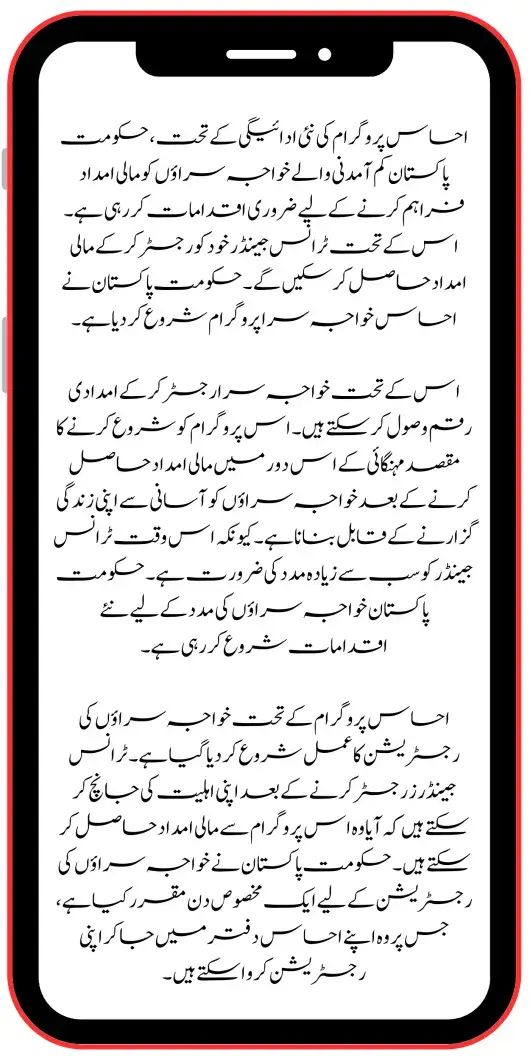 احساس پروگرام کی نئی ادائیگی کے تحت، حکومت
پاکستان کم آمدنی والے خواجہ سراؤں کو مالی امداد
فراہم کرنے کے لیے ضروری اقدامات کر رہی ہے۔
اس کے تحت ٹرانس جینڈر خود کو رجسٹر کر کے مالی
امداد حاصل کر سکیں گے۔ حکومت پاکستان نے
احساس خواجہ سرا پروگرام شروع کر دیا ہے۔
اس کے تحت خواجہ سرا رجسٹر کر کے امدادی
رقم وصول کر سکتے ہیں۔ اس پروگرام کو شروع کرنے کا
مقصد مہنگائی کے اس دور میں مالی امداد حاصل
کرنے کے بعد خواجہ سراؤں کو آسانی سے اپنی زندگی
گزارنے کے قابل بنانا ہے۔ کیونکہ اس وقت ٹرانس
جینڈر کو سب سے زیادہ مدد کی ضرورت ہے۔ حکومت
پاکستان خواجہ سراؤں کی مدد کے لیے نئے
اقدامات شروع کر رہی ہے۔
احساس پروگرام کے تحت خواجہ سراؤں کی
رجسٹریشن کا عمل شروع کر دیا گیا ہے۔ ٹرانس
جینڈرز رجسٹر کرنے کے بعد اپنی اہلیت کی جانچ کر
سکتے ہیں کہ آیا وہ اس پروگرام سے مالی امداد حاصل کر
سکتے ہیں۔ حکومت پاکستان نے خواجہ سراؤں کی
رجسٹریشن کے لیے ایک مخصوص دن مقرر کیا ہے،
جس پر وہ اپنے احساس دفتر میں جا کر اپنی
رجسٹریشن کروا سکتے ہیں۔